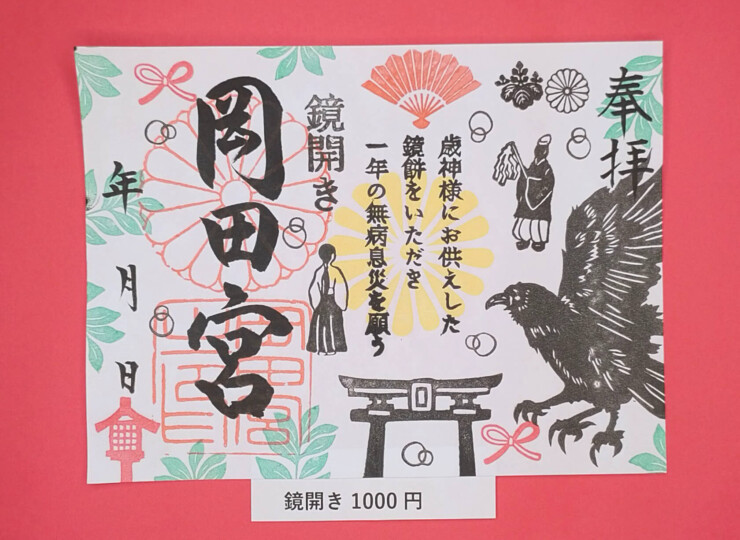 奉拝
歳神様にお供えした
鏡餅をいただき
一年の無病息災を願う
鏡開き
岡田宮
年 月 日
鏡開き 1000 円